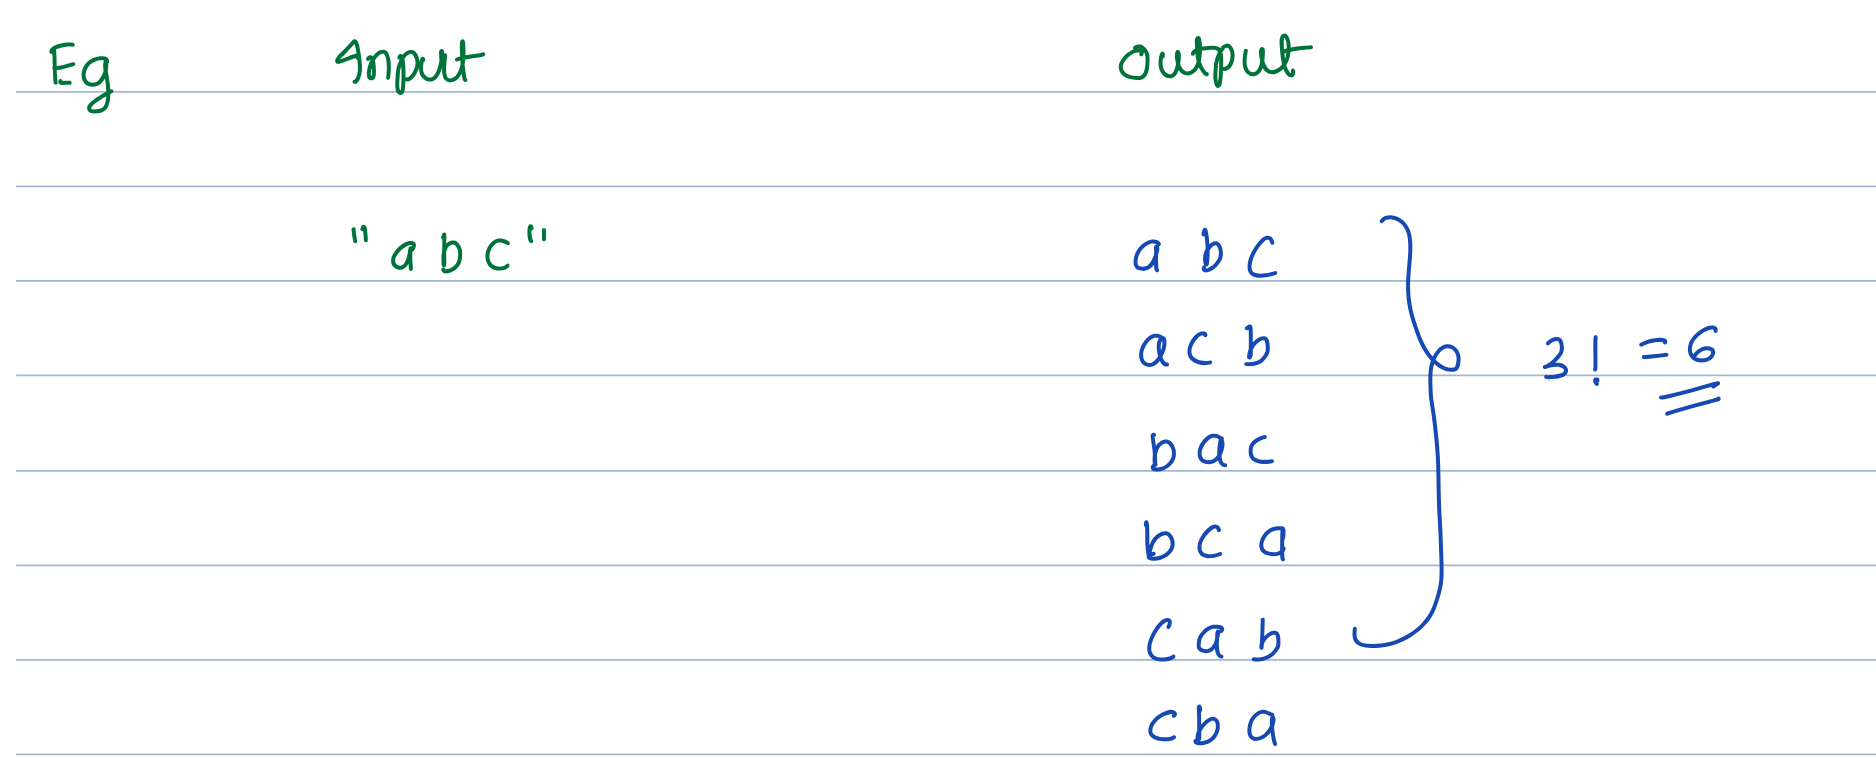 Eg Input Output
"abc" abc
acb 3! = 6
bac
bca
cab
cba